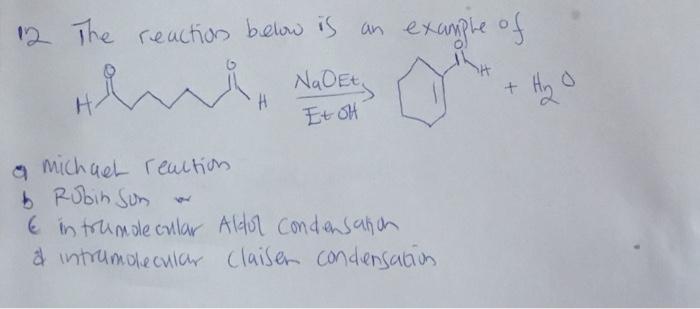 12 The reaction below is an example of
O O O
H H NaOEt EtOH H + H2O
a michael reaction
b Robinson
c intramolecular Aldol condensation
d intramolecular Claisen condensation